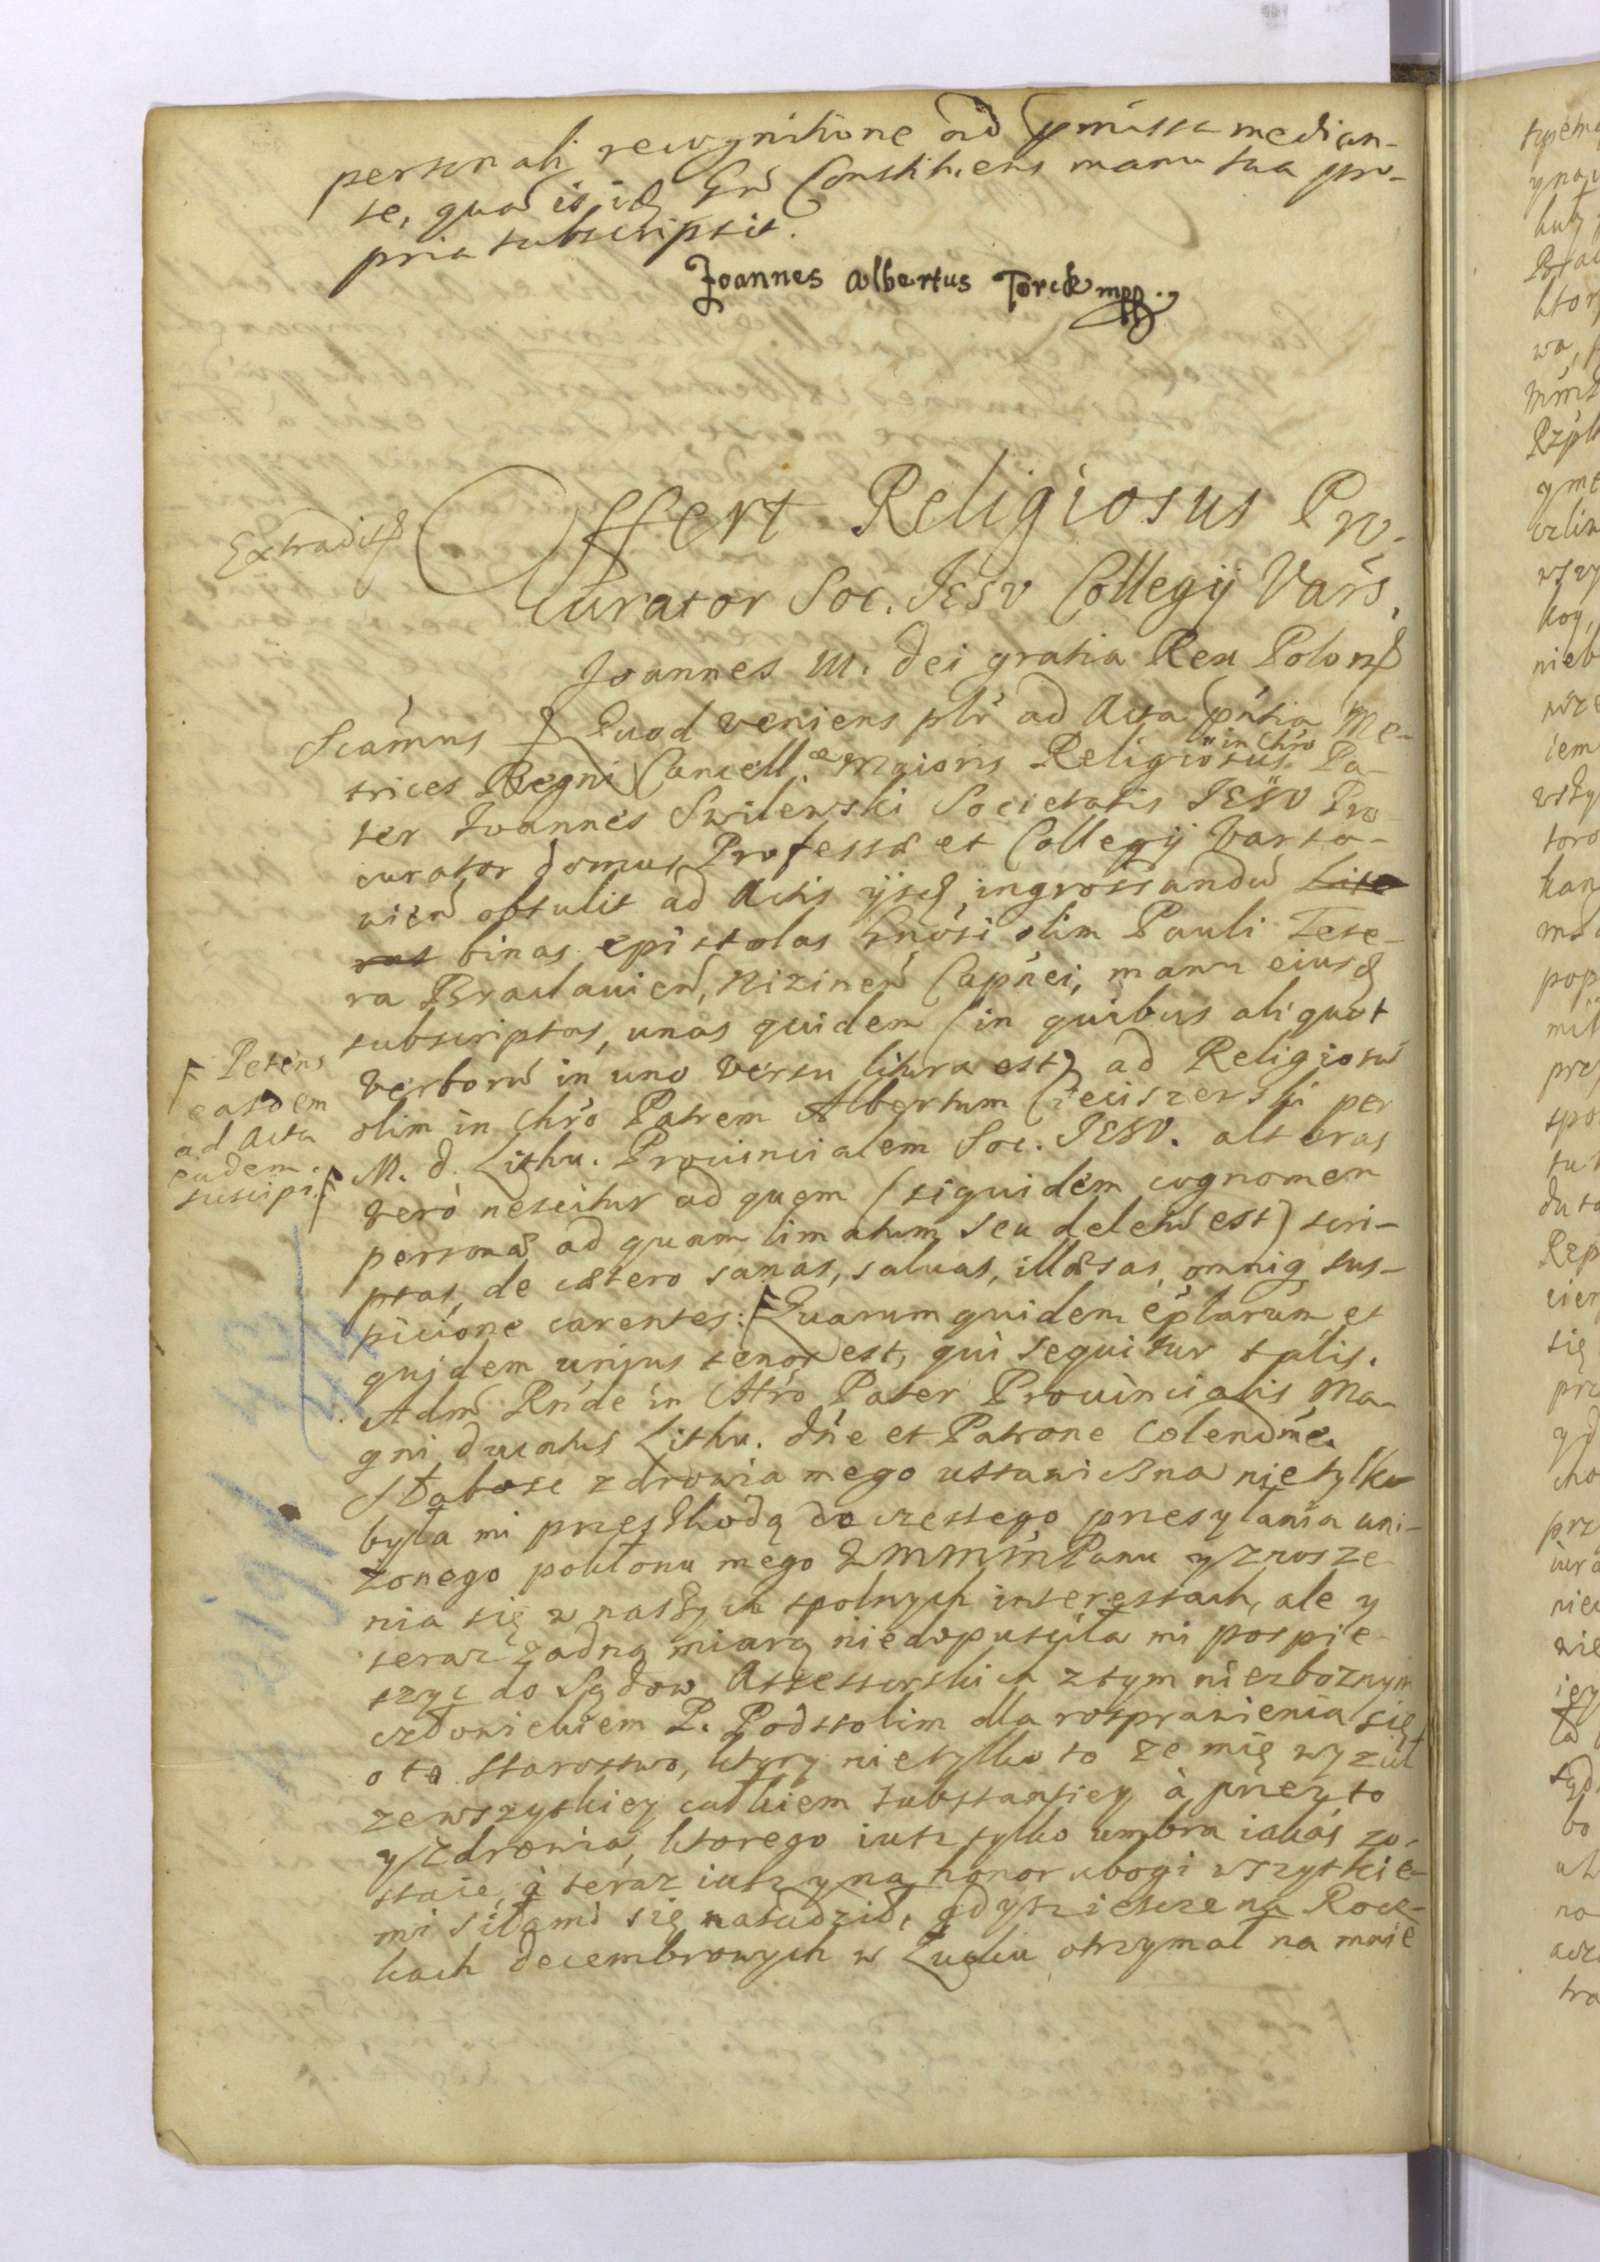 personali recognitione ad pmissa median-
te, quā is id Gns Constituens manu sua pro-
pria subscripsit.
Joannes Albertus Torck mpp.
Extradit
Offert Religiosus Pro-
curator Soc. IESV Collegij Vars.
Joannes III. Dei gratia Rex Polon
Scāmus Quod veniens plr ad Acta pn̄tia Me-
trices Regni Cancell. Maioris Religiosus in Chro Pa-
ter Joannes Swilewski Societatis IESV Pro
curator domus Professæ et Collegij Varsa-
vien obtulit ad Actis ijsd ingrossandū Lite
ras binas epistolas Gn̄osi olim Pauli Tete-
ra Braclavien, Nizinen Capn̄ei, manu eiusd
subscriptas, unas quidem (in quibus aliquot
verborū in uno versu litura est) ad Religiosū
olim in Chr̄o Patrem Albertum Cieciszerski per
M. D. Lithu. Provincialem Soc. IESV. alteras
verò nescitur ad quem (siquidem cognomen
personæ ad quam limatum seu deletū est) scri-
ptas, de cætero sanas, salvas, illæsas omniq sus-
picione carentes: Quarum quidem ep̄larum et
quidem unius tenor est, qui sequitur talis.
Petens
easdem
ad Acta
eadem
suscipi.
Adm Rn̄de in Chr̄o Pater Provincialis Ma-
gni Ducatus Lithu. Dn̄e et Patrone Colendme.
Słabosc zdrowia mego ustawiczna nietylko
była mi przeszkodą do czestego przesyłania uni-
zonego pokłonu mego WMMMPanu y znosze
nia się w naszych spolnych interessach, ale y
teraz żadną miarą niedopuściła mi pospie-
szyc do Sądow Assessorskich z tym niezboznym
człowiekiem P. Podstolim dla rosprawienia się
o to Starostwo, ktory nietylko to ze mię wyzuł
zewszytkiey całkiem substantiey à przez to
y zdrowia, ktorego iusz tylko umbra iakaś zo-
staie, à teraz iusz y na honor ubogi wszytkie-
mi siłami się nasadził, gdysz ieszcze na Rocz-
kach decembrowych w Łucku otrzymał na mnie